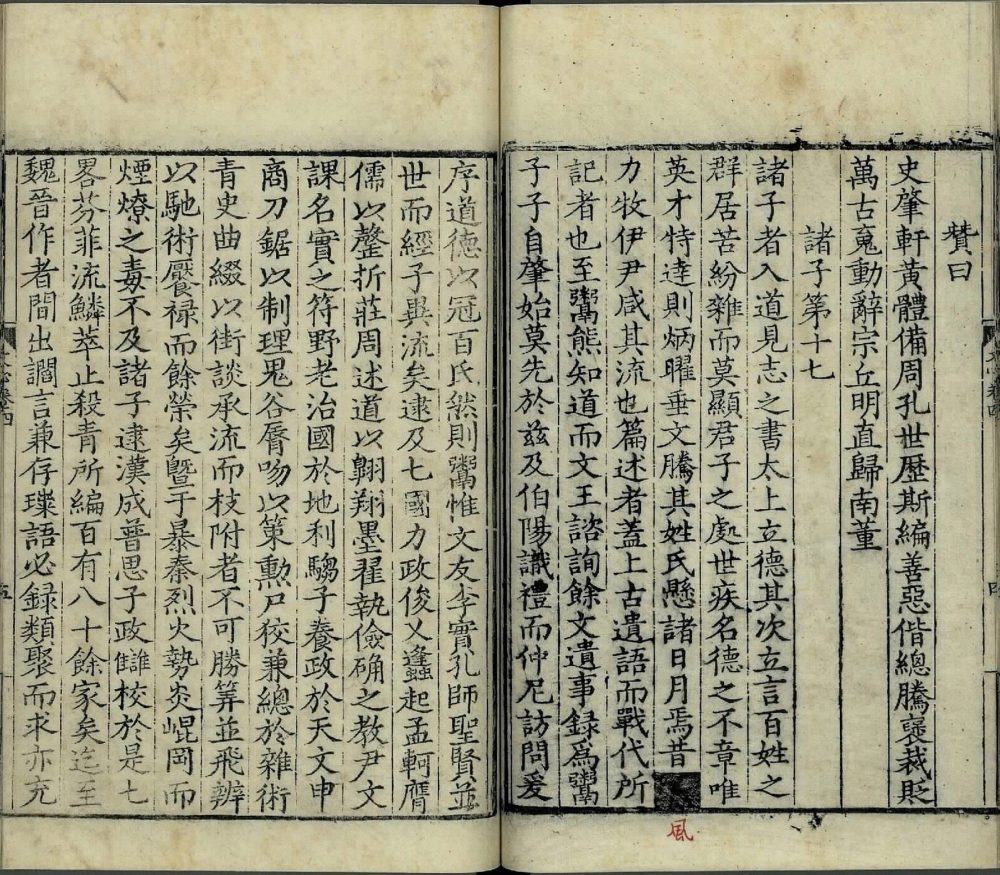 贊曰
史肇軒黃體備周孔世歷斯編善惡偕總騰褒裁貶
萬古䰟動辭宗丘明直歸南董
諸子第十七
諸子者入道見志之書太上立德其次立言百姓之
群居苦紛雜而莫顯君子之處世疾名德之不章唯
英才特達則炳曜垂文騰其姓氏懸諸日月焉昔
風
力牧伊尹咸其流也篇述者蓋上古遺語而戰代所
記者也至鬻熊知道而文王諮詢餘文遺事録爲鬻
子子自肇始莫先於兹及伯陽識禮而仲尼訪問爰
序道德以冠百氏然則鬻惟文友李實孔師聖賢並
世而經子異流矣逮及七國力政俊乂蠭起孟軻膺
儒以磬折莊周述道以翺翔墨翟執儉确之教尹文
課名實之符野老治國於地利騶子養政於天文申
商刀鋸以制理鬼谷脣吻以策勲尸佼兼總於雜術
青史曲綴以街談承流而枝附者不可勝筭並飛辨
以馳術饜禄而餘榮矣曁于暴秦烈火勢炎崐岡而
煙燎之毒不及諸子逮漢成普思子政讎校於是七
畧芬菲流鱗萃止殺青所編百有八十餘家矣迄至
魏晉作者間出讕言兼存璅語必録類聚而求亦充